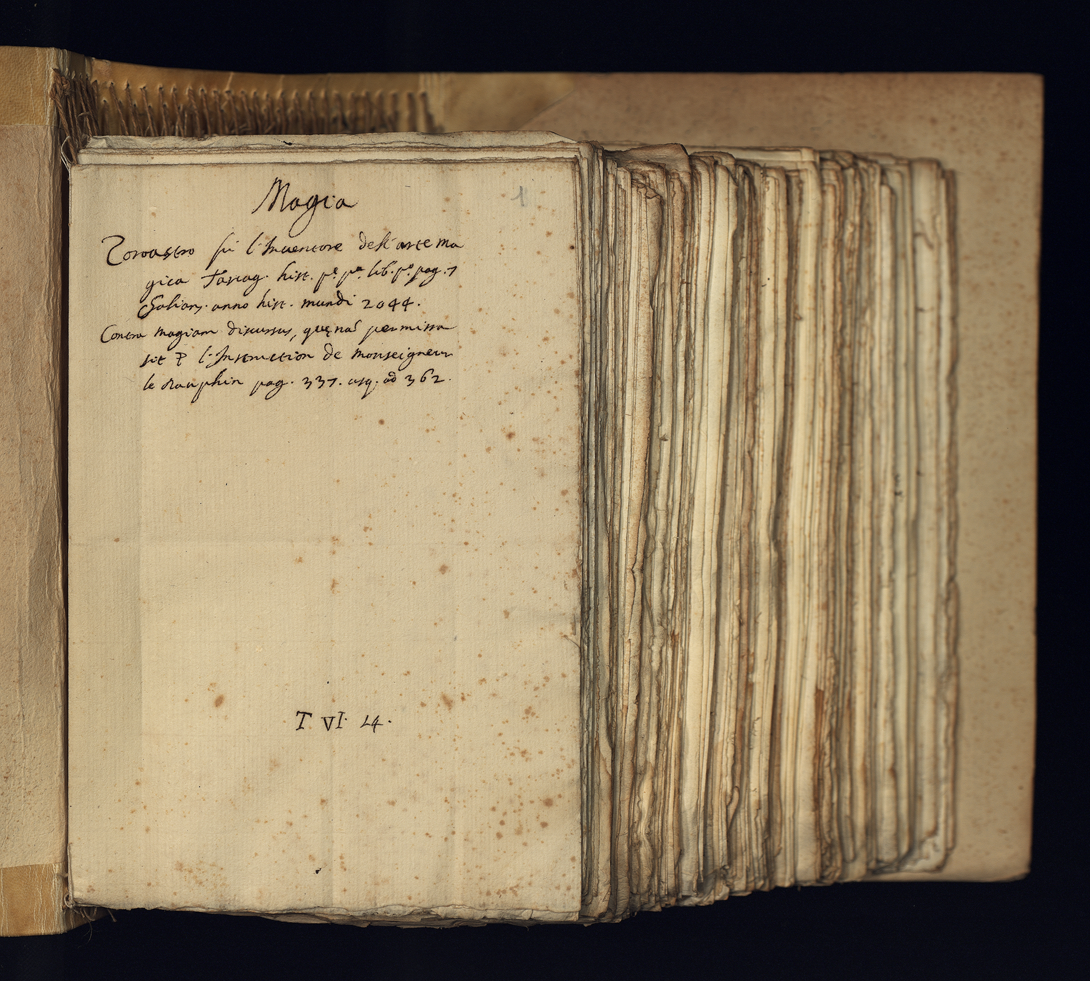 Magia
1
Zoroastro fù l'Inuentore dell'arte ma
gica Tarcag. hist. pe. pa. lib. po. pag. 7
Salian. anno hist. mundi 2044.
Contra magiam discursus, quęnã permissa
sit P l'Instruction de monseigneur
le dauphin pag. 337. usq. ad 362.
T VI. 14.